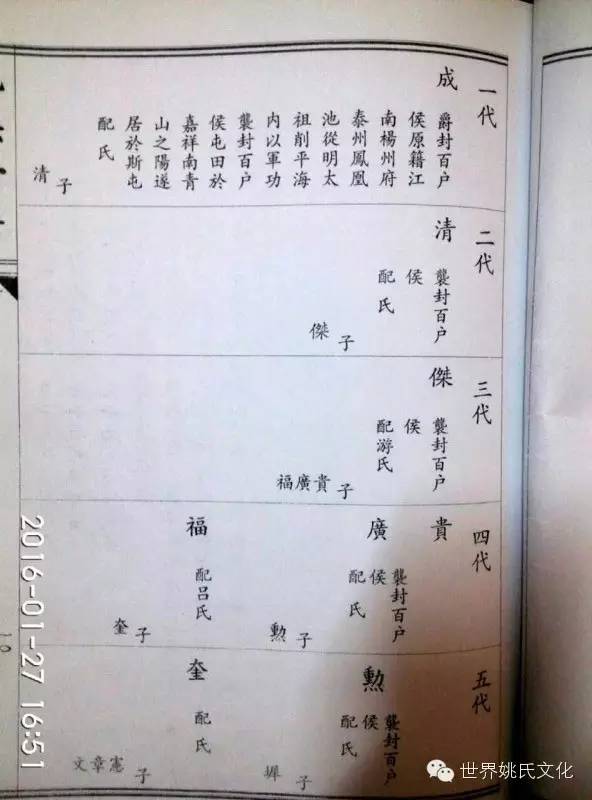 一代
成
爵封百户
侯原籍江
南楊州府
泰州鳳凰
池從明太
祖削平海
内以軍功
襲封百户
侯屯田於
嘉祥南青
山之陽遂
居於斯屯
配氏
子
清
二代
清
襲封百户
侯
配氏
子
傑
三代
傑
襲封百户
侯
配游氏
子
貴廣福
四代
貴
廣
襲封百户
侯
配氏
子
勲
福
配吕氏
子
奎
五代
勲
襲封百户
侯
配氏
子
奎
配氏
子
憲章文
2016-01-27 16:51
世界姚氏文化